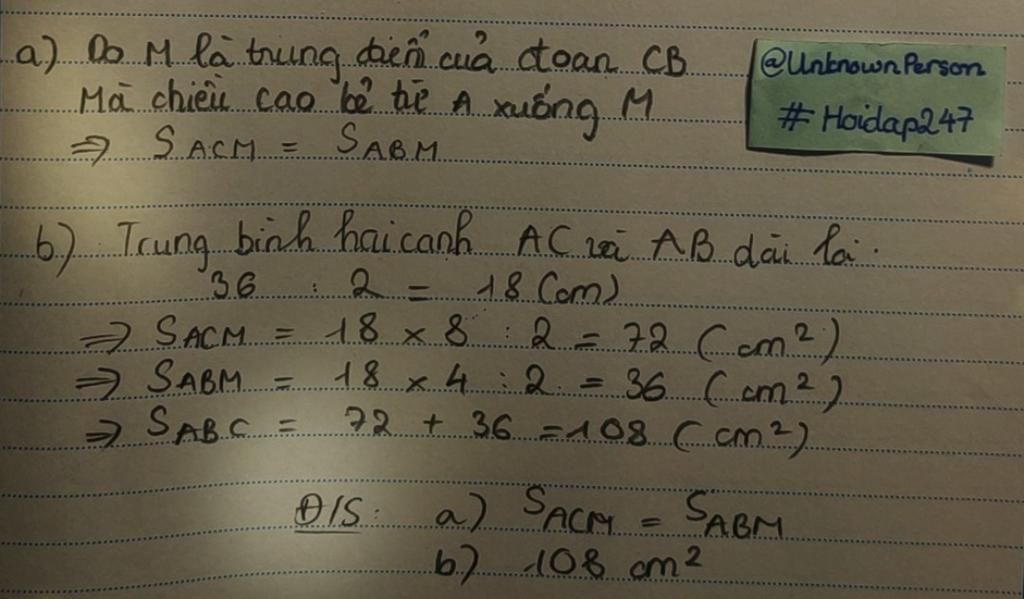 a) Do M là trung điểm của đoan CB
Mà chiều cao kẻ từ A xuống M
⇒ SACM = SABM
@UnknownPerson
# Hoidap247
b) Trung bình hai canh AC và AB dài là:
36 : 2 = 18 (cm)
⇒ SACM = 18 × 8 : 2 = 72 (cm²)
⇒ SABM = 18 × 4 : 2 = 36 (cm²)
⇒ SABC = 72 + 36 = 108 (cm²)
Đ/S: a) SACM = SABM
b) 108 cm²